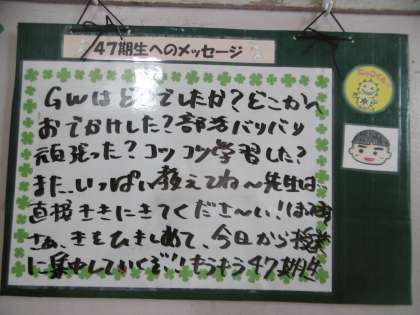 47期生へのメッセージ
GWはどうでしたか?どこかへ
おでかけした?部活バリバリ
頑張った?コツコツ学習した?
また、いっぱい教えてね〜先生は、
直接ききにきてくださ〜い!
さぁ、きをひきしめて、今日から授業
に集中していくぞ!!もうもう47期生